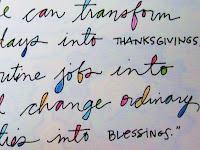 can transform
days into THANKSGIVINGS,
routine jobs into
change ordinary
into BLESSINGS."